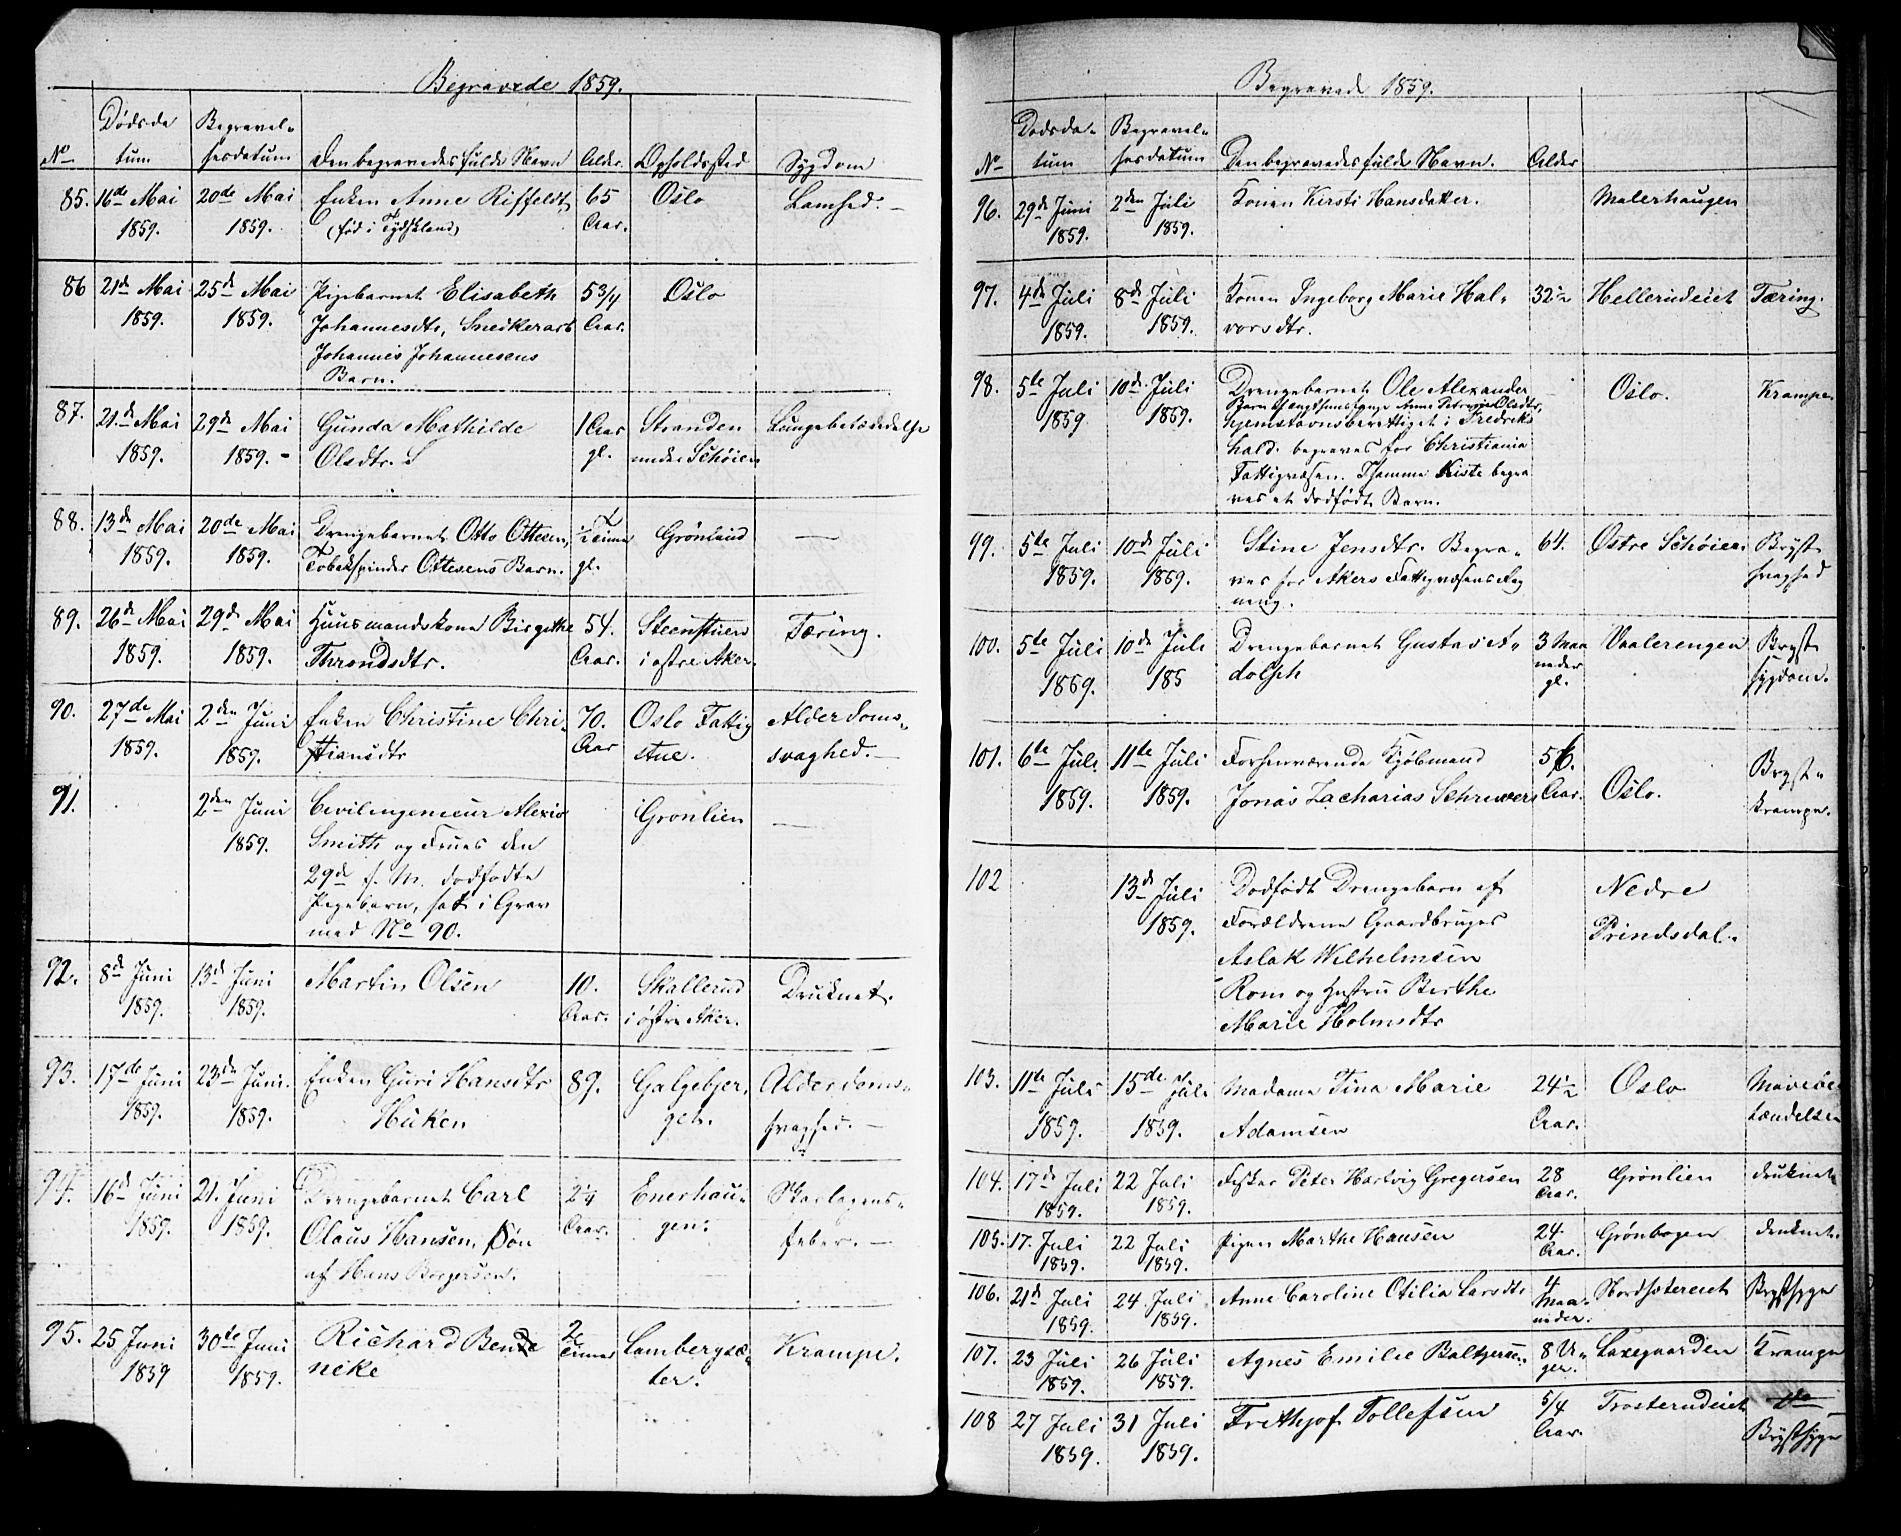 Begravede 1859.
No Dødsdatum Begravelsesdatum Den begravedes fulde Navn Alder. Opholdssted Sygdom
85. 16de Mai 1859. 20de Mai 1859. Enken Anne Riffeldt, (født i Tydskland) 65 Aar. Oslo Lamhed. –
86 21de Mai 1859. 25de Mai 1859. Pigebarnet Elisabeth
Johannesdtr, Snedkerarb
Johannes Johannesens
Barn. 5 3/4 Aar. Oslo
87. 21de Mai 1859. 29de Mai 1859. – Gunda Mathilde
Olsdtr. 1 Aar gl. Stranden under Schøien Lungebetændelse
88. 13de Mai 1859. 20de Mai 1859. Drengebarnet Otto Ottesen,
Tobakspinder Ottesens Barn. 1/2 Time gl. Grønland —
89. 26de Mai 1859. 29de Mai 1859. Huusmandskone Birgithe
Throndsdtr. 54. Aar. Steenstuen i østre Aker. Tæring.
90. 27de Mai 1859. 2den Juni 1859. Enken Christine Chri-
stiansdtr 70. Aar Oslo Fattigstue. Alderdoms-
svaghed. –
91. 2den Juni 1859. Civilingenieur Alexis
Smith og Frues den
29de f. M. dødfødte
Pigebarn, sat i Grav
med No 90. Grønlien —
92. 8de Juni 1859. 13de Juni 1859. Martin Olsen 10. Aar. Skullerud i østre Aker. Druknet.
93. 17de Juni 1859. 23de Juni. 1859. Enken Guri Hansdtr
Huken 89. Galgebjerget. Alderdoms-
svaghed. –
94. 16de Juni 1859. 21. Juni 1859. Drengebarnet Carl
Olaus Hansen, Søn
af Hans Borgersen. 2 1/4 Aar. Enerhaugen. Skarlagens-
feber. –
95. 25 Juni 1859 30te Juni 1859. Richard Ben
neke 2 Timer Lambergsæter. Krampe.
Begravede 1859.
No Dødsdatum Begravelsesdatum Den begravedes fulde Navn. Alder
96. 29de Juni 1859. 2den Juli 1859. Konen Kirsti Hansdatter. Malerhaugen
97. 4de Juli 1859. 8de Juli 1859. Konen Ingeborg Marie Hal-
vorsdtr. 32 1/2 Hellerudeiet Tæring.
98. 5te Juli 1859 10de Juli 1859. Drengebarnet Ole Alexander
Barn af ugift Anne Petronille Olsdtr,
hjemstavnsberettiget i Fredriks
hald. begraves for Christiania
Fattigvæsen. I samme Kiste begra
ves et dødfødt Barn. Oslo. Krampe
99. 5te Juli 1859. 10de Juli 1859. Stine Jensdtr. Begra-
ves for Akers Fattigvæsens Reg
ning. 64. Østre Schøien Bryst
svaghed
100. 5te Juli 1859. 10de Juli 185 Drengebarnet Gustav A-
dolph 3 Maaneder gl. Vaalerengen Bryst
sygdom.
101. 6te Juli 1859. 11te Juli 1859. Forhenværende Kjøbmand
Jonas Zacharias Schriwers 56. Aar. Oslo. Bryst-
krampe.
102 13de Juli 1859. Dødfødt Drengebarn af
Forældrene Gaardbruger
Aslak Wilhelmsen
Rom og Hustru Berthe
Marie Holmsdtr Nedre
Prindsdal.
103. 11te Juli 1859. 15de Juli 1859. Madame Tina Marie
Adamsen 24 1/2 Aar. Oslo Mavebe
tændelse
104. 17de Juli 1859. 22 Juli 1859. Fisker Peter Hartvig Gregersen 28 Aar. Grønlien druknet
105. 17. Juli 1859. 22 Juli 1859. Pigen Marthe Hansen 24. Aar. Grønbogen druknet.
106. 21de Juli 1859. 24 Juli 1859. Anne Caroline Otilia Larsdtr 4 Maaneder. Nordstereiet Brystsyge
107. 23 Juli 1859. 26 Juli 1859. Agnes Emilie Baltzersen. 8 Uger. Laxegaarden Krampe
108 27 Juli 1859. 31 Juli 1859. Frithjof Tollefsen 5/4 Aar. Trosterudeiet do
Brystsyge